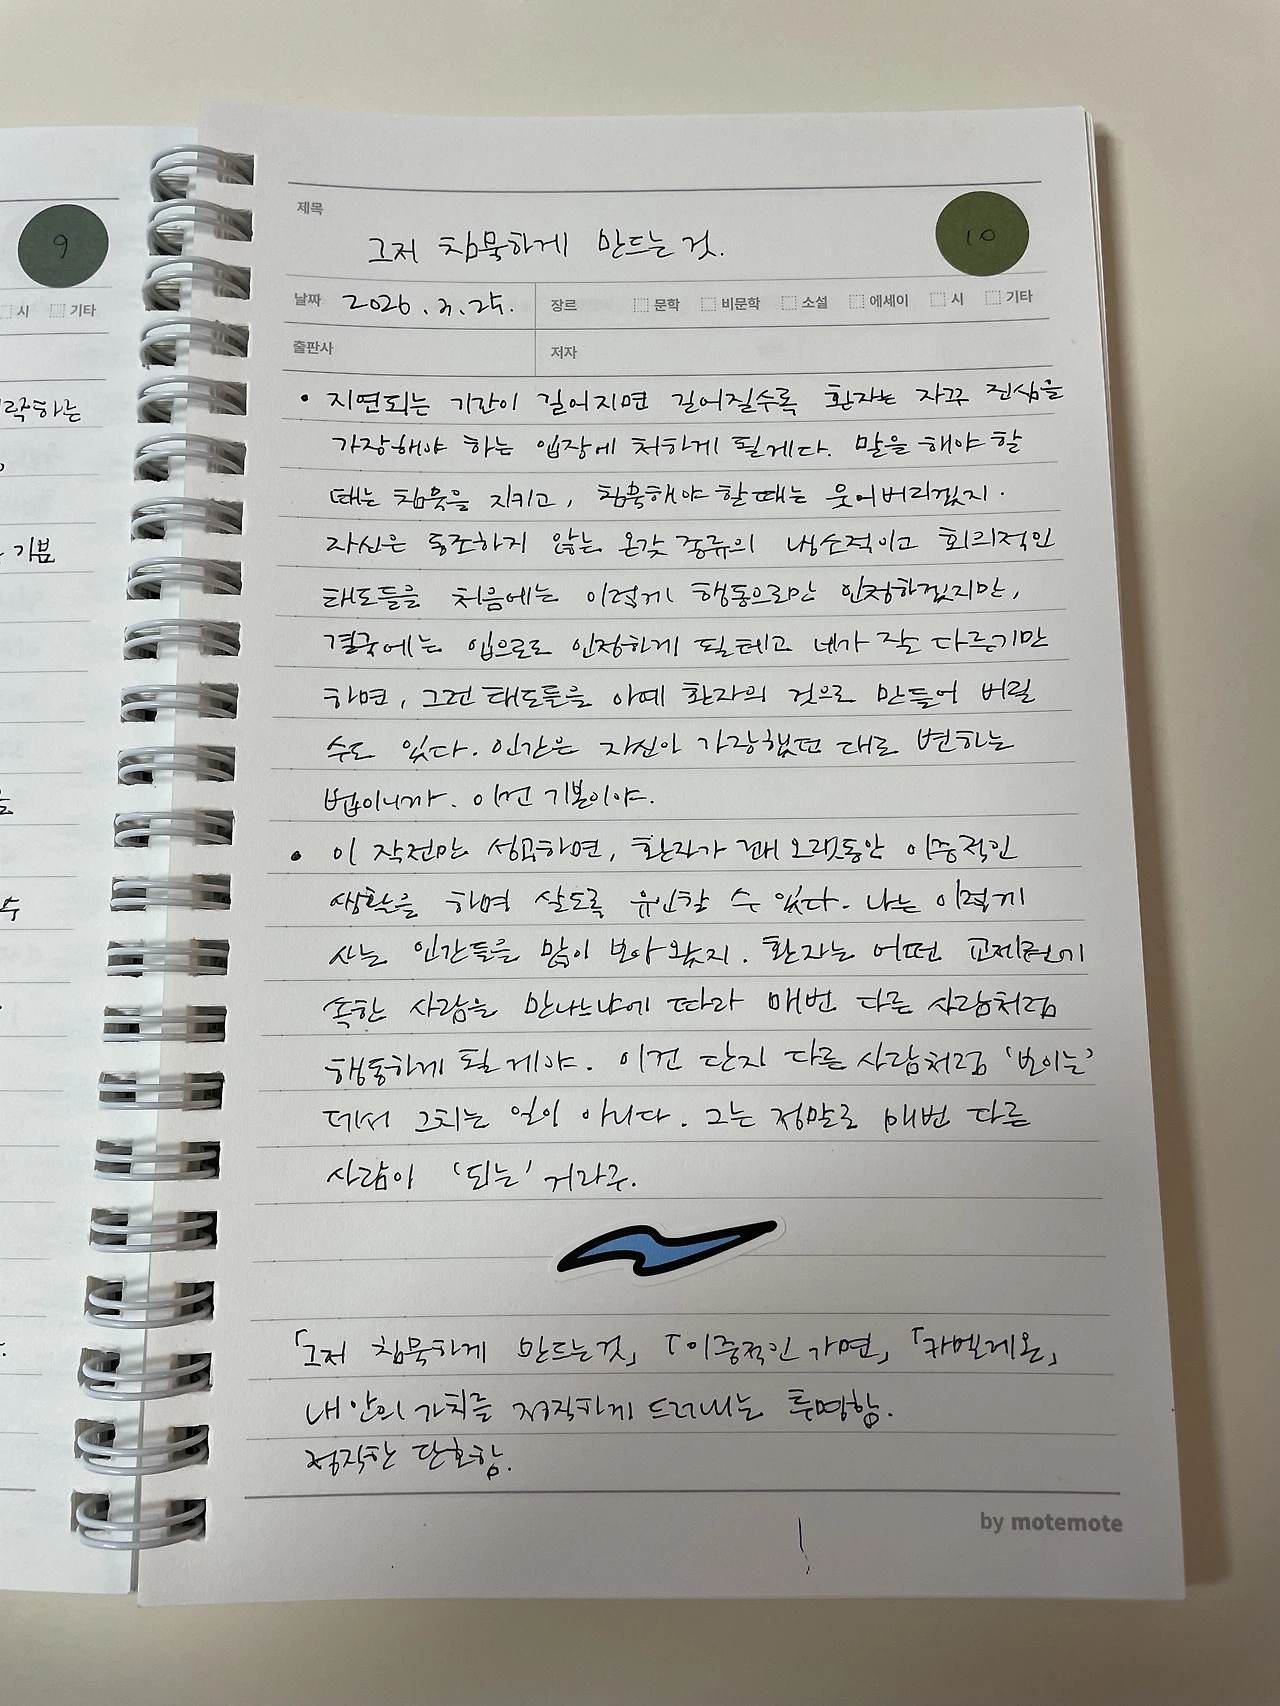 9
시 기타
락하는
기쁨
수
제목
10
그저 침묵하게 만드는 것.
날짜 2026. 3. 25. 장르 문학 비문학 소설 에세이 시 기타
출판사 저자
• 지연되는 기간이 길어지면 길어질수록 환자는 자꾸 진심을
가장해야 하는 입장에 처하게 될게다. 말을 해야 할
때는 침묵을 지키고, 침묵해야 할 때는 웃어버리겠지.
자신은 동조하지 않는 온갖 종류의 냉소적이고 회의적인
태도들을 처음에는 이렇게 행동으로만 인정하겠지만,
결국에는 입으로도 인정하게 될테고 네가 잘 다루기만
하면, 그런 태도들을 아예 환자의 것으로 만들어 버릴
수도 있다. 인간은 자신이 가장했던 대로 변하는
법이니까. 이건 기본이야.
• 이 작전만 성공하면, 환자가 꽤 오랫동안 이중적인
생활을 하며 살도록 유인할 수 있다. 나는 이렇게
사는 인간들을 많이 보아 왔지. 환자는 어떤 교제권에
속한 사람을 만나느냐에 따라 매번 다른 사람처럼
행동하게 될 게야. 이건 단지 다른 사람처럼 '보이는'
데서 그치는 일이 아니다. 그는 정말로 매번 다른
사람이 '되는' 거라구.
「그저 침묵하게 만드는 것」 「이중적인 가면」 「카멜레온」
내 안의 가치를 정직하게 드러내는 투명함.
정직한 단호함.
by motemote